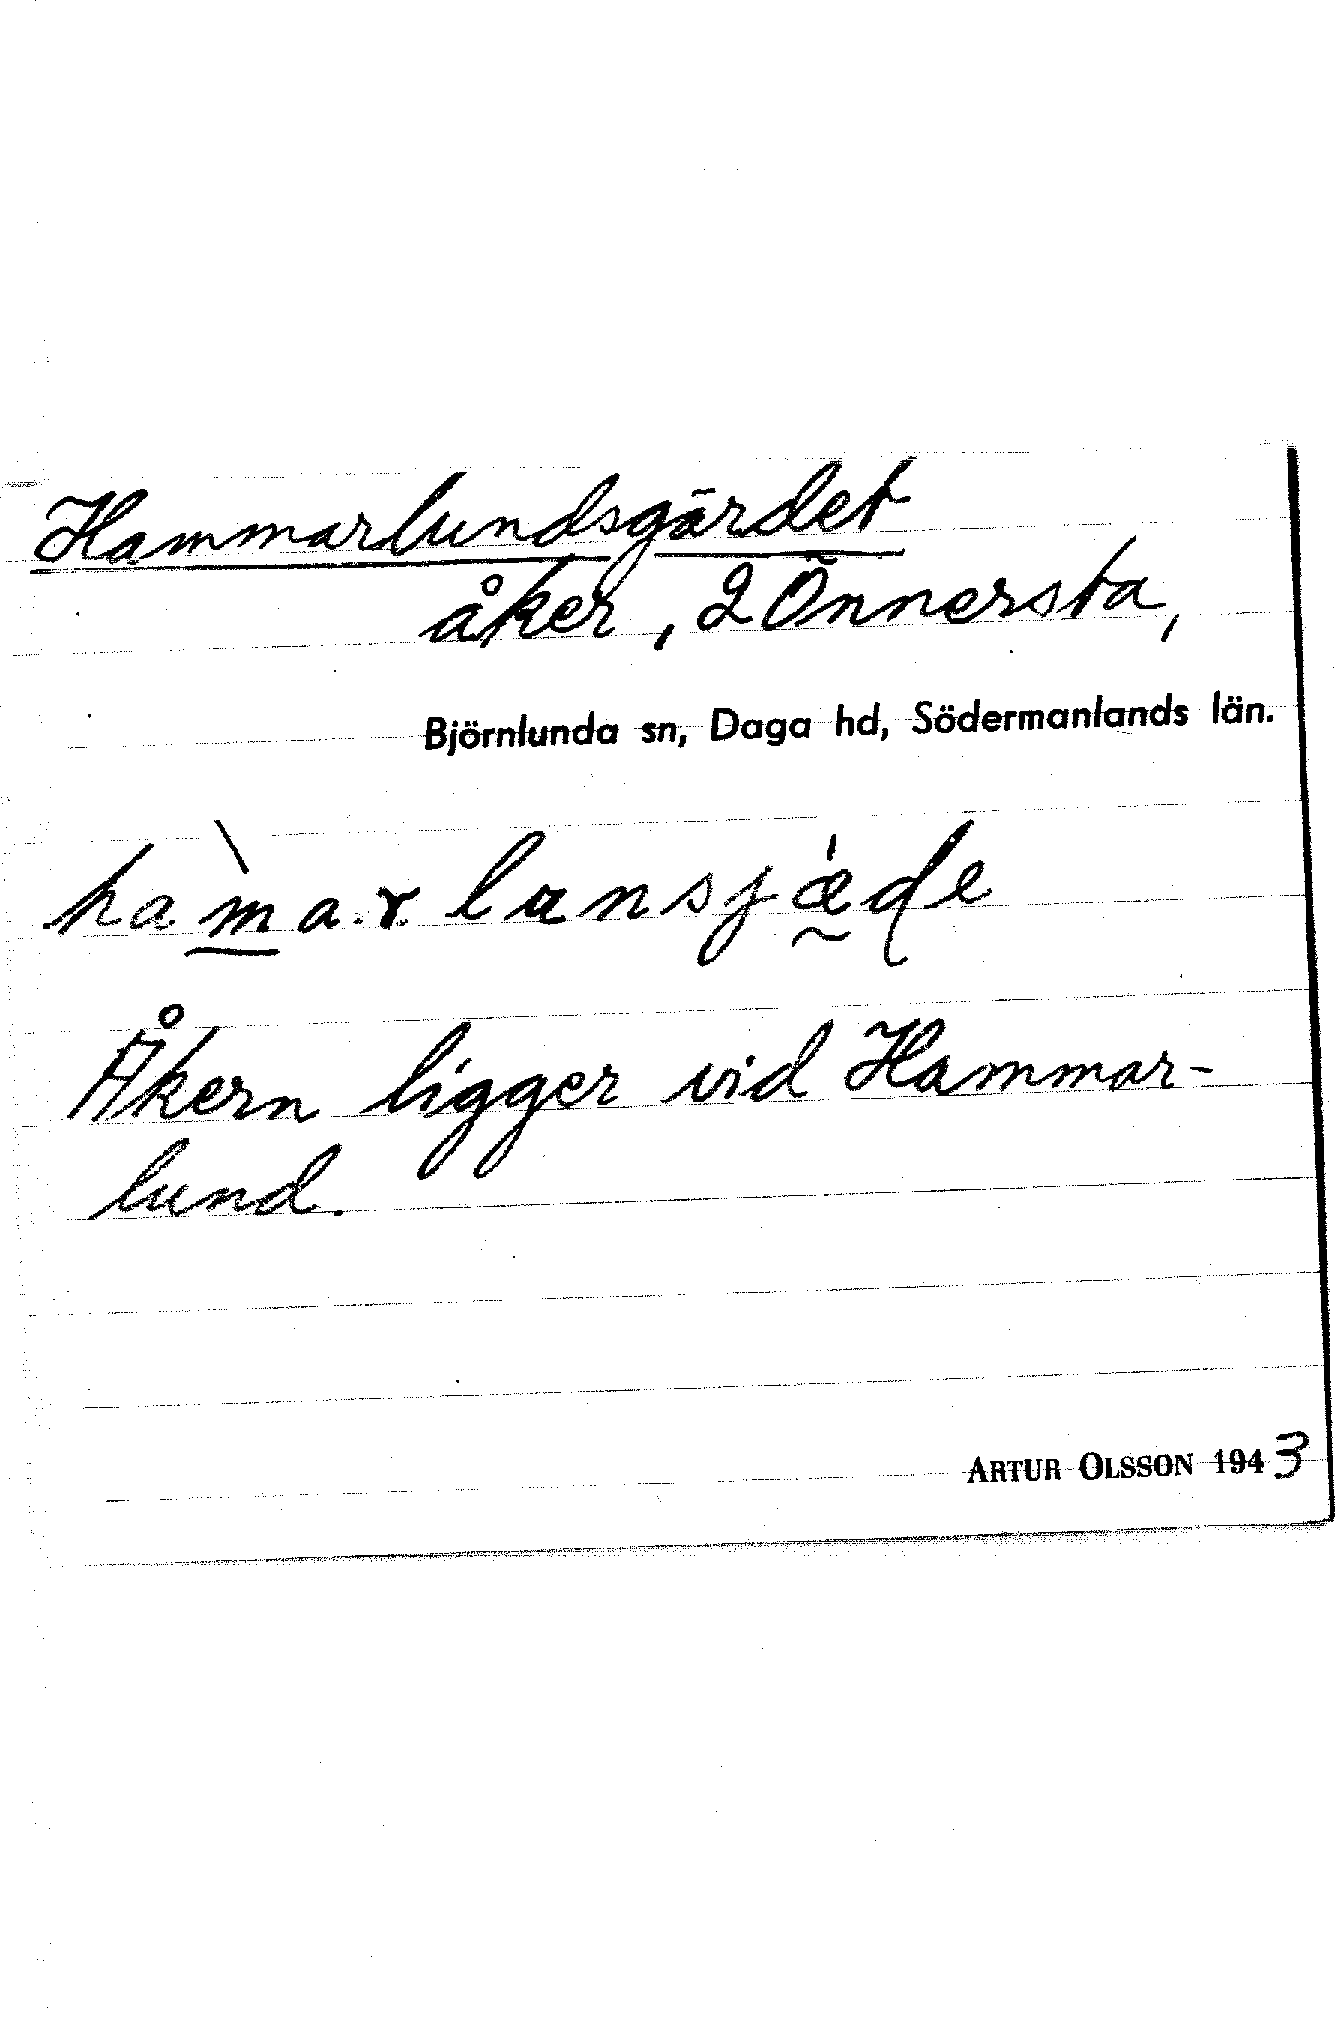 Hammarlundsgärdet
åker, 2 Önnersta,
Björnlunda sn, Daga hd, Södermanlands län.
Åkern ligger vid Hammar-
lund.
ARTUR OLSSON 1943